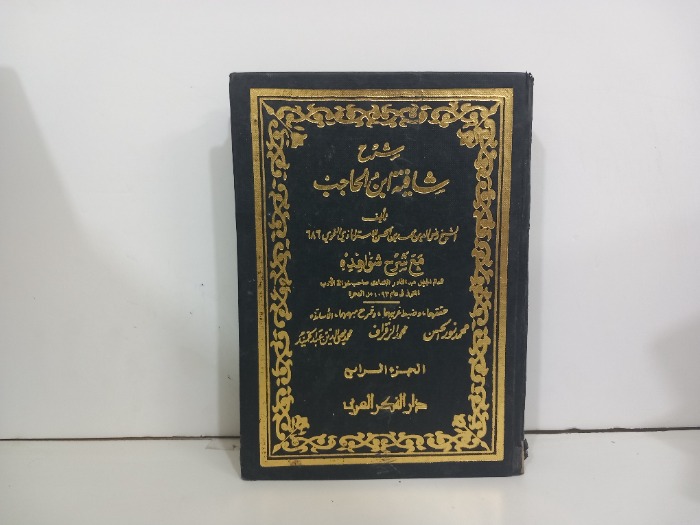 شرح
شافية ابن الحاجب
تأليف
الشيخ رضي الدين محمد بن الحسن الاستراباذي النحوي ٦٨٦
مع شرح شواهده
للعالم الجليل عبد القادر البغدادي صاحب خزانة الأدب
المتوفى في عام ١٠٩٣ من الهجرة
حققهما، وضبط غريبهما، وشرح مبهمهما، الأساتذة
محمد نور الحسن محمد الزفزاف محمد محيى الدين عبد الحميد
الجزء الرابع
دار الفكر العربي